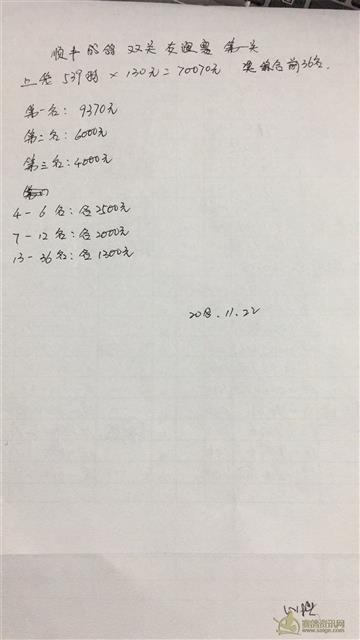 顺丰的鸽 双关友谊赛 第一关
上笼 539羽 × 130元 = 70070元 奖励各前36名.
第一名: 9370元
第二名: 6000元
第三名: 4000元
4 - 6 名: 各2500元
7 - 12 名: 各2000元
13 - 36 名: 各1300元
2018.11.22
赛鸽资讯网
www.saige.com